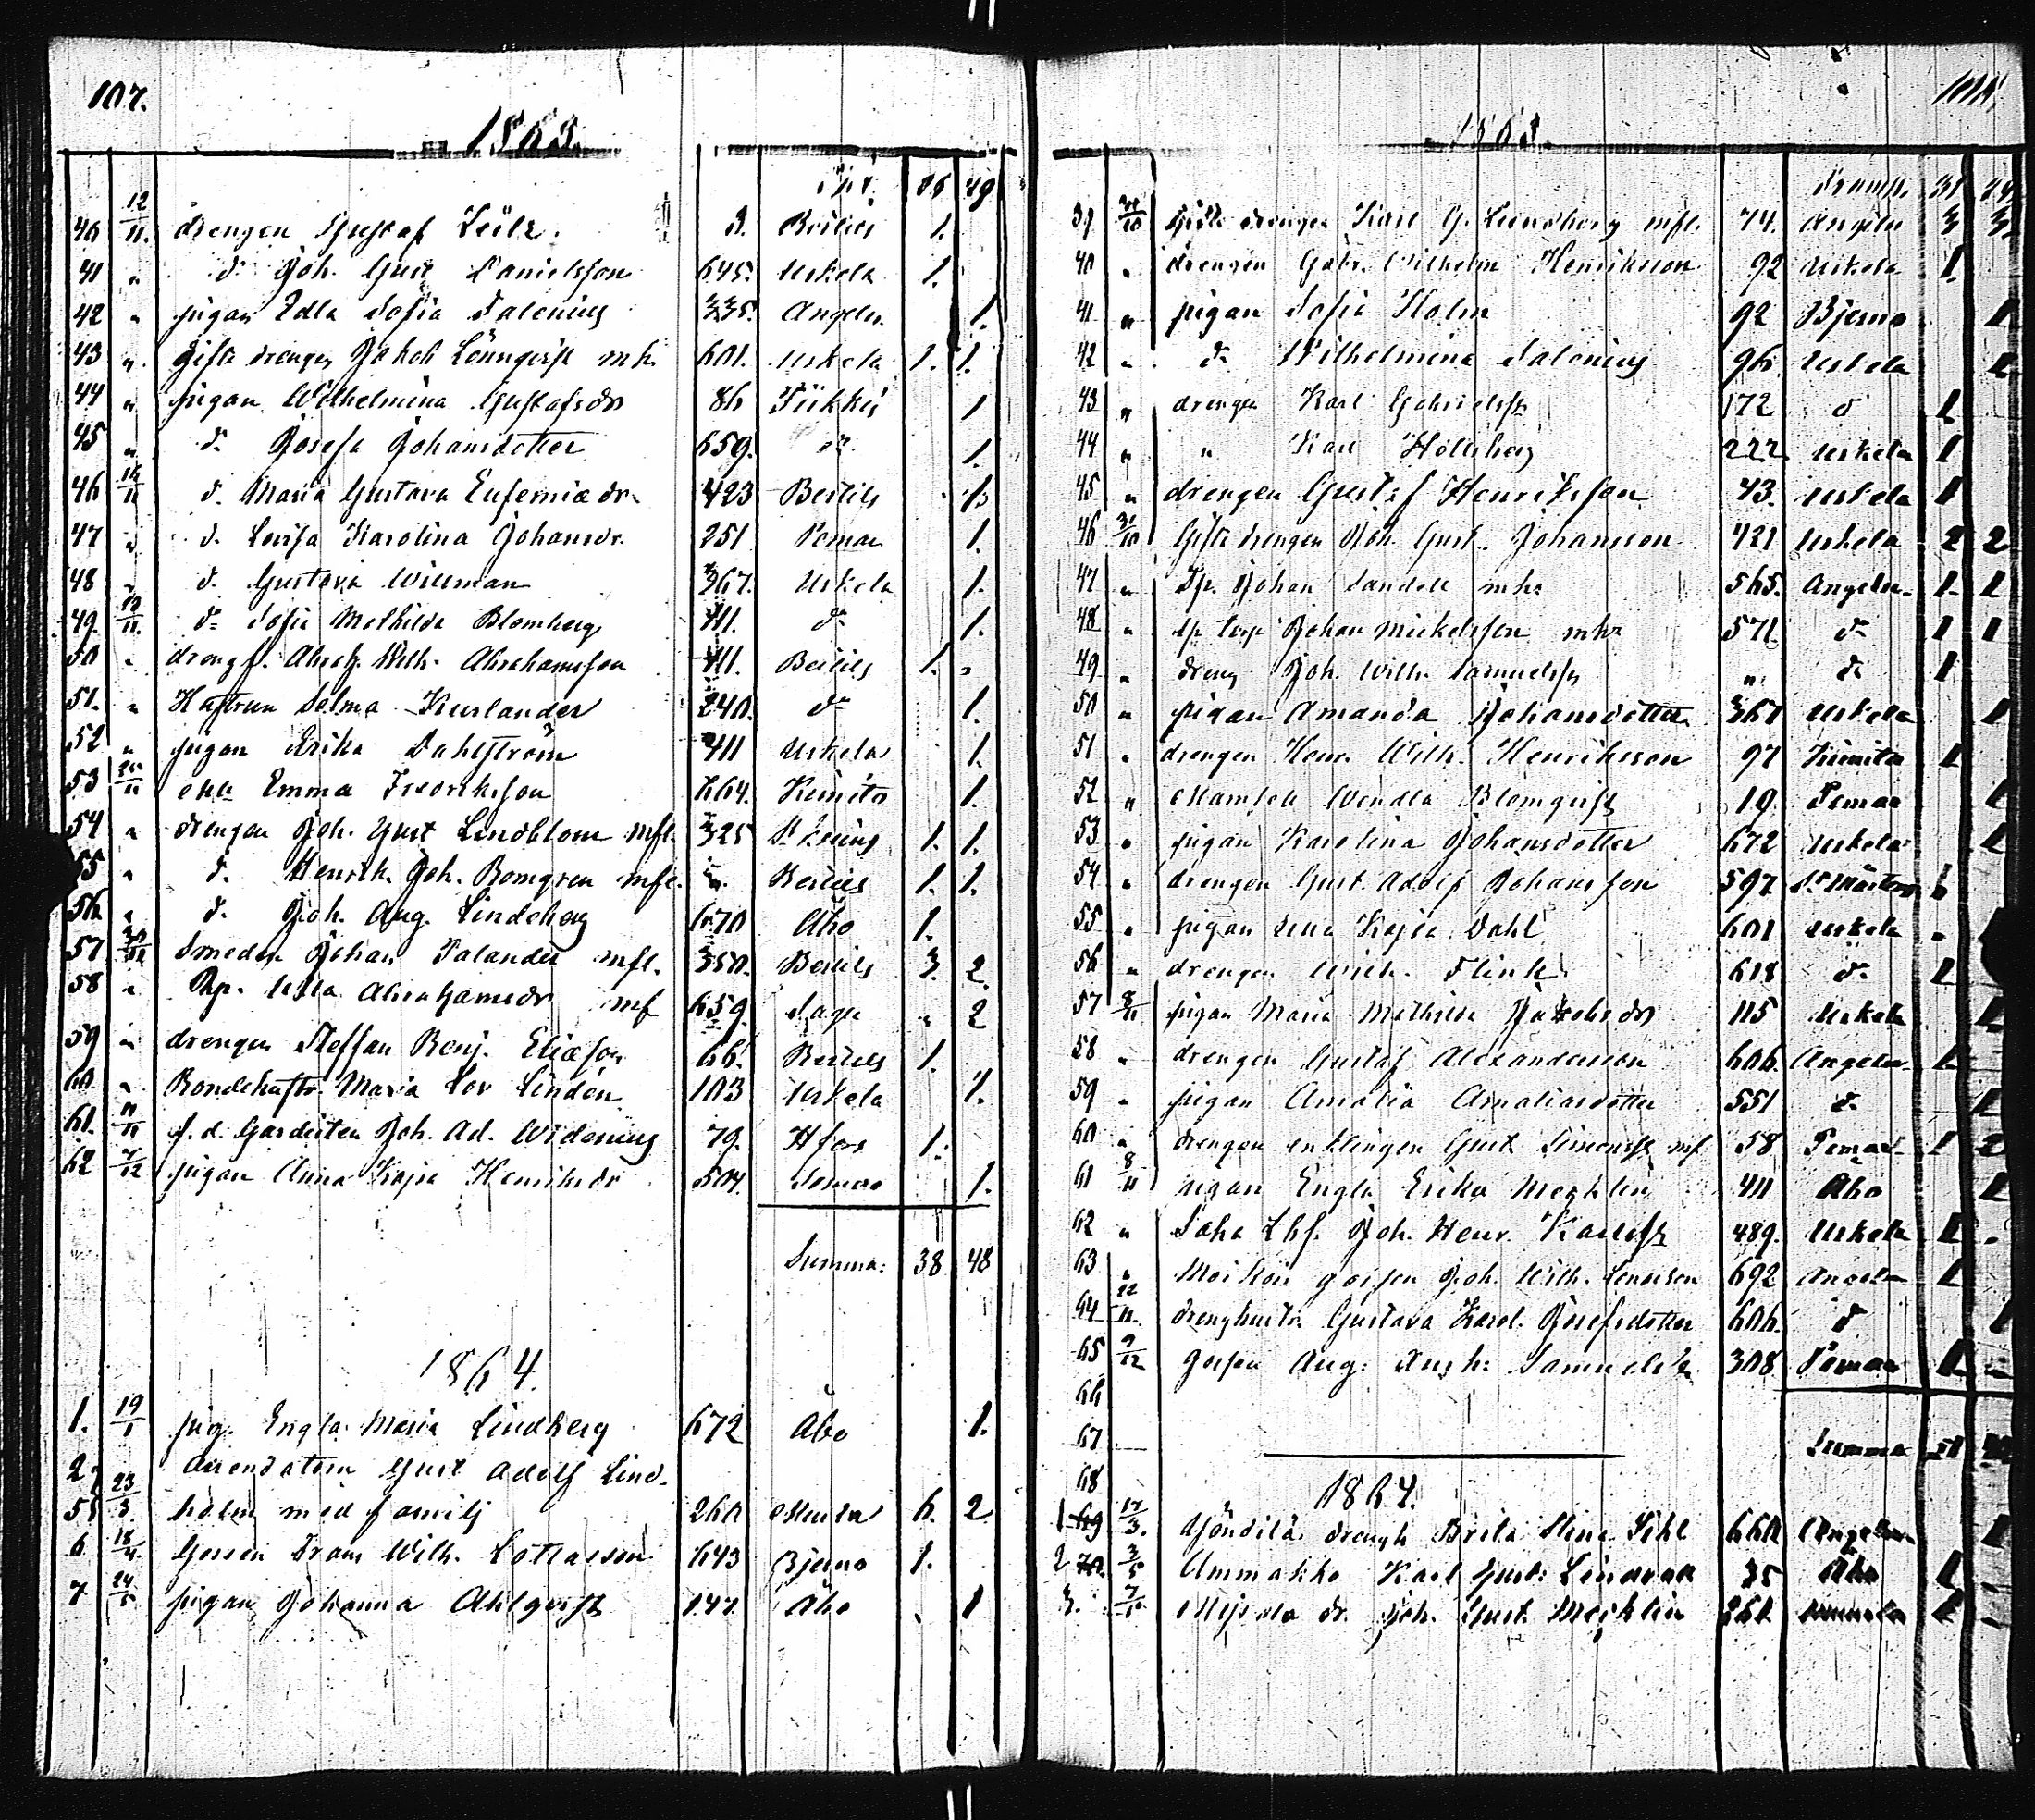 107.
1863.
Trt. 26 29
40 12/11. drengen Gustaf Leile. 3. Bertils 1.
41 " d. Joh. Gust Danielsson 645. Uskela 1.
42 " pigan Edla Sofia Salenius 335. Angeln. 1.
43 " gifta drengen Jakob Lönnqvist mh. 601. Uskela 1. 1.
44 " pigan Wilhelmina Gustafsdr 86 Pükkiö 1
45 " d. Josefa Johansdotter 659. d:o 1.
46 16/11 d. Maria Gustava Eufemiædr 423 Bertils 1.
47 " d. Lovisa Karolina Johansdr. 251 Pemar 1.
48 " d. Gustava Willman 367. Uskela 1.
49. d:o Sofia Mathilda Blomberg 411. d:o 1.
50 " drengs. Abrah. Wilh. Abrahamsson 411. Bertils 1. "
51. " Hustrun Selma Kurlander 240. d:o 1.
52 " pigan Erika Dahlström 411 Uskela 1.
53 enk. Emma Fredriksson 664. Kimito 1.
54 " drengen Joh. Gust Lindblom mfl. 325 1. 1.
55 " d. Henrik Joh. Bomgren mfl. " Bertils 1. 1.
56 " d. Joh. Aug. Lindeberg 670 Åbo 1.
57 Smeden Johan Palander mfl. 350. Bertils 3. 2.
58 " Ulla Abrahamsdr mf 659. Sagu " 2
59 " drengen Steffan Benj. Eliæson 66. Bertils 1.
60 " Bondehustr. Maria Lov Lindén 103 Uskela 1.
61. f. d. Gardisten Joh. Ad. Widenius 79. Hfors 1.
62 7/12 pigan Anna Kajsa Henriksdr 504. Somero 1.
Summa: 38 48
1864.
1. 19/1 pig. Engla Maria Lindberg 672 Åbo 1.
2 arendatorn Gust Adolf Lind-
5 23/3. holm med familj 260 6. 2
6 18/4. Gossen Frans Wilh. Lottasson 643 Bjerno 1.
7 24/5 pigan Johanna Ahlqvist 147. Åbo . 1
1863.
39 gifte drengen Karl G. Lundberg mfl. 74. Angeln 3 3
40 " drengen Gabr. Wilhelm Henriksson 92 Uskela 1
41 " pigan Sofia Holm 92 Bjerno 1
42 " d:o Wilhelmina Salenius 96 Uskela 1
43 " drengen Karl Gabrielss. 172 d 1
44 " " Karl Hollsberg 222 Uskela 1
45 " drengen Gustaf Henriksson 43. Uskela 1
46 31/10 Gifte drengen Joh. Gust. Johansson 421 Uskela 2 2
47 " Sp. Johan Sandell mh: 565. Angeln 1 1
48 " sp torp Johan Mickelsson mh: 571 d:o 1 1
49 " dreng Joh. Wilh. Samuelss. " d:o 1
50 " pigan Amanda Johansdotter 367 Uskela 1
51 " drengen Henr. Wilh. Henriksson 97 Kimito 1
52 " Mamsell Wendla Blomqvist 19. Pemar 1
53 " pigan Karolina Johansdotter 672 Uskela 1
54 " drengen Gust. Adolf Johansson 597 S:t Mårtens 1
55 " pigan Lena Kajsa Dahl 601 Uskela
56 " drengen Wilh. Flink 618 d:o 1
57 8/11 pigan Maria Mathilda Jakobsdr 115 Uskela 1
58 " drengen Gustaf Alexandersson 606. Angeln 1
59 " pigan Amalia Amaliasdotter 551 d. 1
60 " drengen enklingen Gust Simonss. mf 58 Pemar 1 2
61 8/11 pigan Engla Erika Mechlin 411 Åbo 1
62 " Saha Lhf. Joh. Henr. Karlss. 489. Uskela 1
63 " gossen Joh. Wilh. 692 Angeln 1
64 22/11. drenghustr. Gustava Karol. Josefsdotter 606. d 1
65 9/12 gossen Aug. Samuels. 308 Pemar 1
66
67
Summa
68
1864.
1 69 17/3. drengh Brita Stina 660 Angeln 1
2 70. 3/5 Ammakko Karl Gust. Lindroos 35 Åbo 1
3. Joh. Gust. Mechlin 1